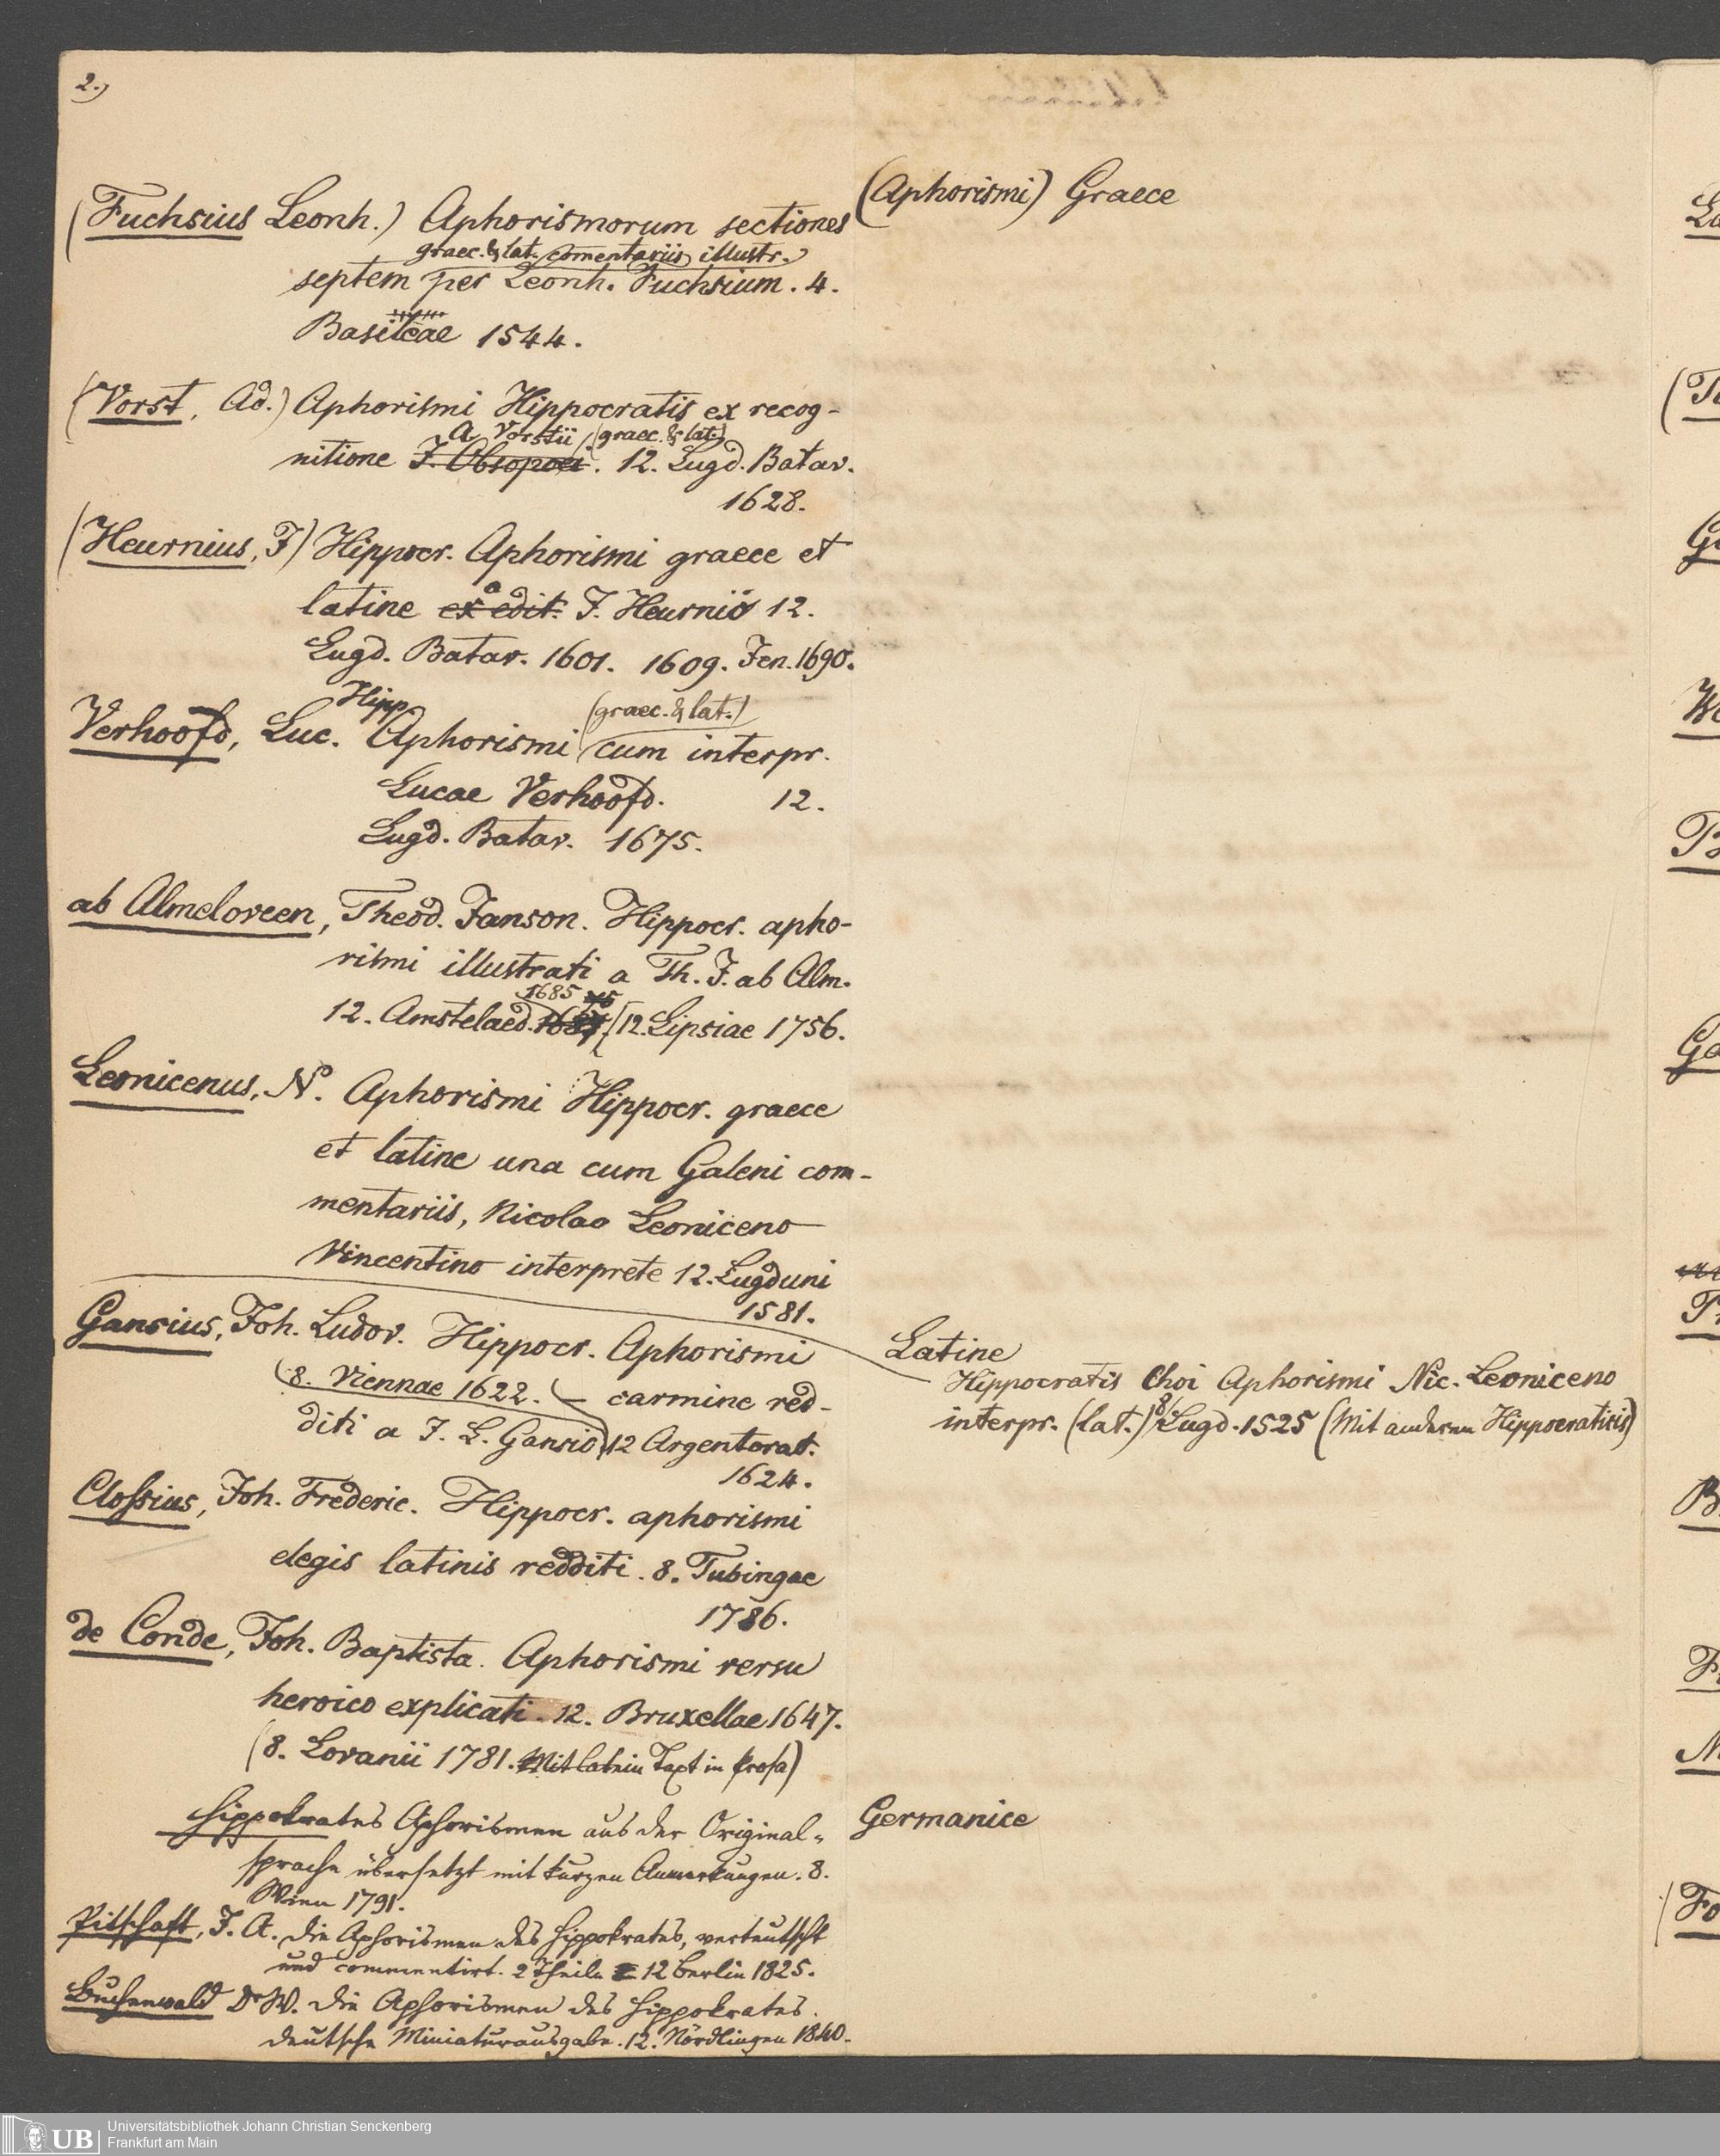 2.)
(Aphorismi) Graece
(Fuchsius Leonh.) Aphorismorum sectiones
graec. & lat. comentariis illustr.
septem per Leonh. Fuchsium. 4.
Basileae 1544.
(Vorst, Ad.) Aphorismi Hippocratis ex recog-
A. Vorstii (graec. & lat.)
nitione J. Obsopoei. 12. Lugd. Batav.
1628.
(Heurnius, J) Hippocr. Aphorismi graece et
a
latine ex edit. J. Heurnio 12.
Lugd. Batav. 1601. 1609. Jen. 1690.
Hipp. (graec. & lat.)
Verhoofd, Luc. Aphorismi cum interpr.
Lucae Verhoofd. 12.
Lugd. Batav. 1675.
ab Almeloveen, Theod. Janson. Hippocr. apho-
rismi illustrati a Th. J. ab Alm.
1685
12. Amstelaed. (12. Lipsiae 1756.
Leonicenus, N. Aphorismi Hippocr. graece
et latine una cum Galeni com-
mentariis, Nicolao Leoniceno
Vincentino interprete 12. Lugduni
1581.
Latine
Hippocratis Choi Aphorismi Nic. Leoniceno
interpr. (lat.) 8. Lugd. 1525 (Mit anderen Hippocraticis)
Gansius, Joh. Ludov. Hippocr. Aphorismi
(8. Viennae 1622. — carmine red-
diti a J. L. Gansio) 12 Argentorat.
1624.
Clossius, Joh. Frederic. Hippocr. aphorismi
elegis latinis redditi. 8. Tubingae
1786.
de Conde, Joh. Baptista. Aphorismi versu
heroico explicati. 12. Bruxellae 1647.
(8. Lovanii 1781. Mit latein Text in Prosa)
Germanice
Hippokrates Aphorismen aus der Original-
sprache übersetzt mit kurzen Anmerkungen. 8.
Wien 1791.
Pitschaft, J. A. Die Aphorismen des Hippokrates, verteutscht
und commentirt. 2 Theile 12 Berlin 1825.
Buchenwald Dr W. Die Aphorismen des Hippokrates.
deutsche Miniaturausgabe. 12. Nördlingen 1840.
UB
Universitätsbibliothek Johann Christian Senckenberg
Frankfurt am Main